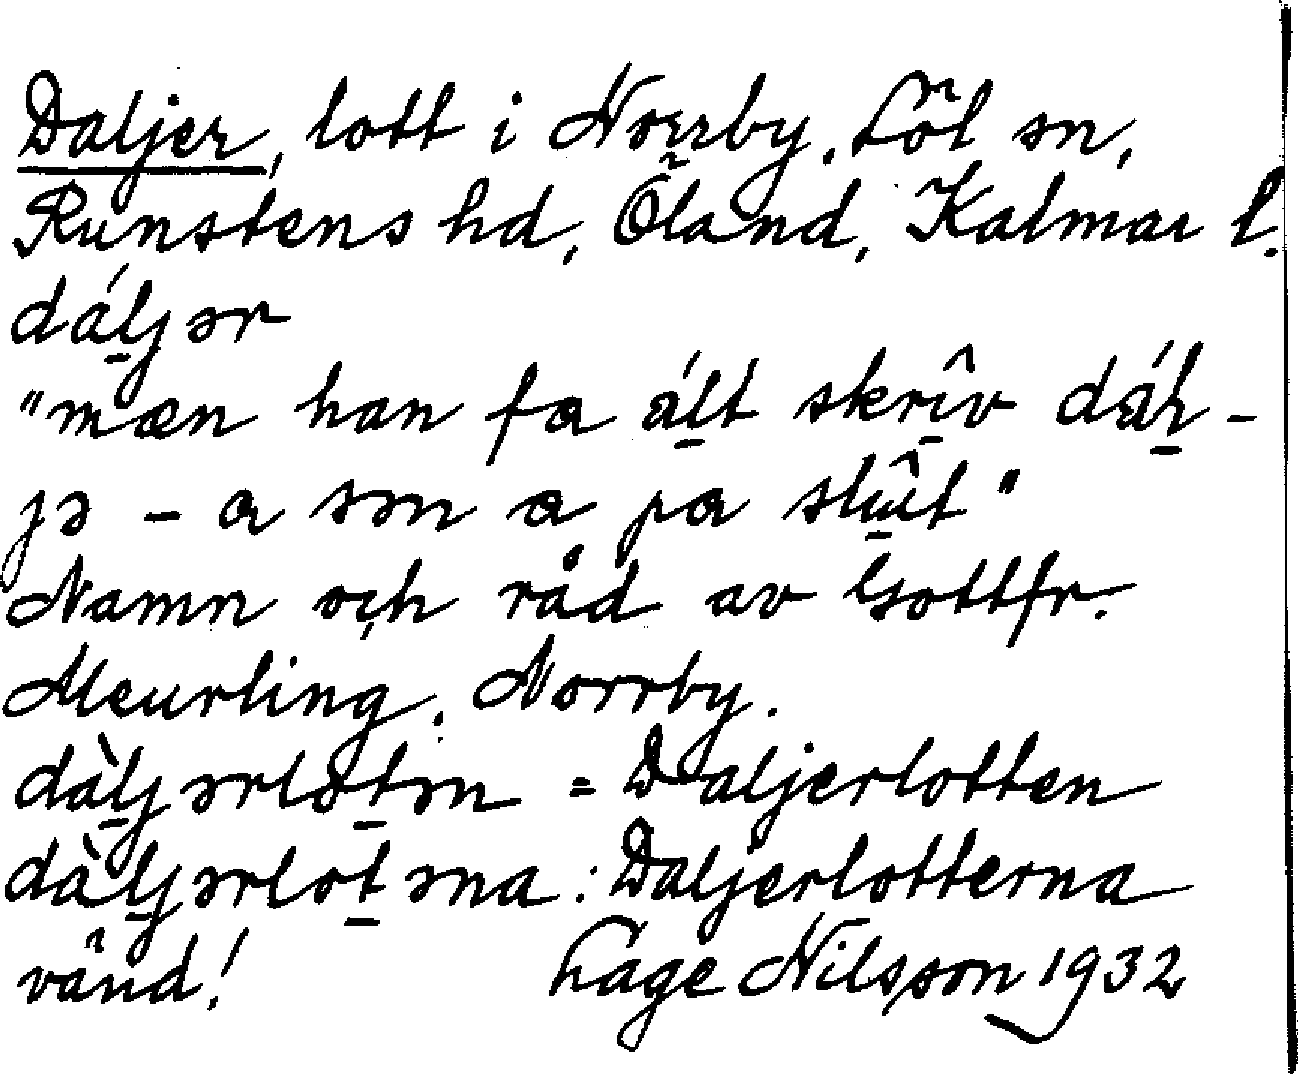 Daljer, lott i Norrby, Löt sn,
Runstens hd, Öland, Kalmar l.
dáļjər
"mæn han fɑ áļt skrîv dáļ-
jə – ɑ sən ɑ pɑ slʉ̂t"
Namn och råd av Gottfr.
Meurling, Norrby.
dàļjərlot̠ən = Daljerlotten
dàļjərlot̠əna : Daljerlotterna
vänd! Lage Nilsson 1932